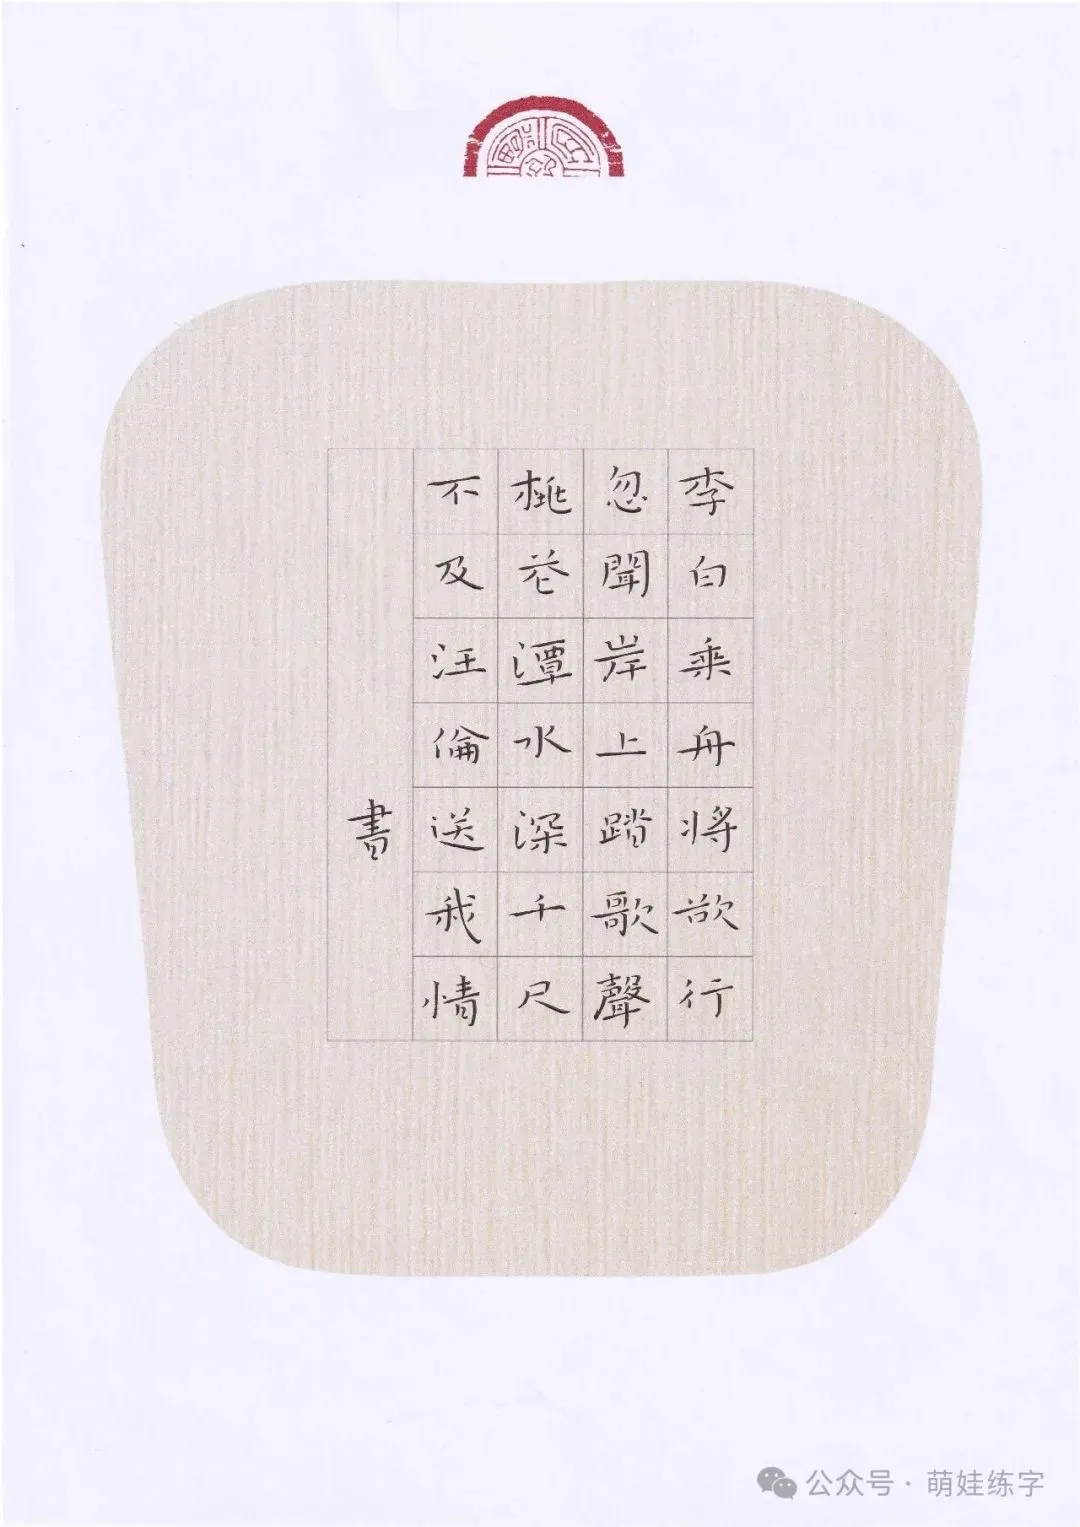 李白乘舟將欲行
忽聞岸上踏歌聲
桃花潭水深千尺
不及汪倫送我情
書
公众号·萌娃练字